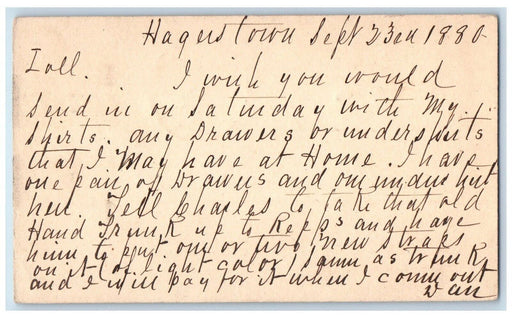 Hagerstown Sept 23rd 1880
I will. I wish you would
send in on Saturday with My
Shirts. any Drawers or undershirts
that I May have at Home. I have
one pair of Drawers and one undershirt
here. Tell Charles to take that old
Hand Trunk up to Repps and have
him to put one or two new straps
on it of light color, same as trunk
and I will pay for it when I come out
Dan